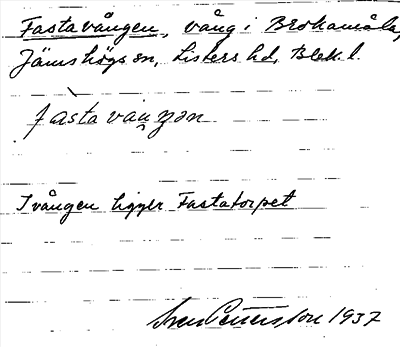 Fastavången, vång i Brokamåla,
Jämshögs sn, Listers hd, Blek. l.
fàstavaŋ̊ȥən
I vången ligger Fastatorpet
Sven Pettersson 1937